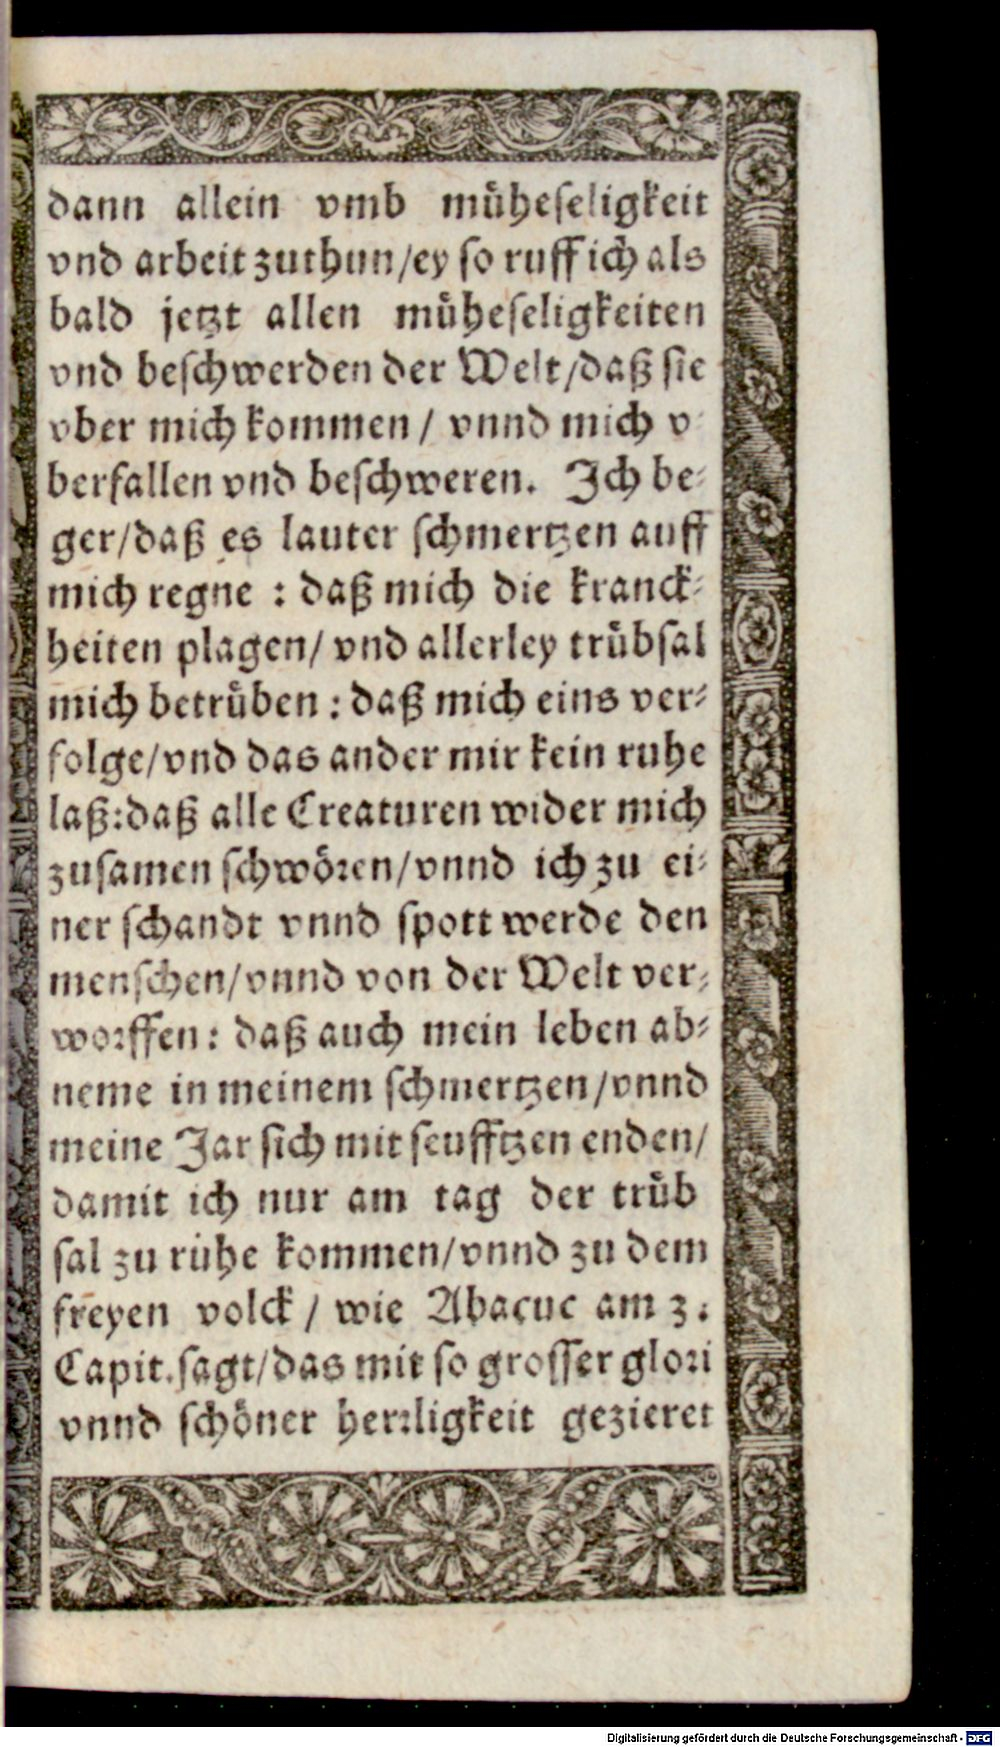 dann allein vmb muͤheseligkeit
vnd arbeit zuthun/ey so ruff ich als
bald jetzt allen muͤheseligkeiten
vnd beschwerden der Welt/daß sie
vber mich kommen / vnnd mich v⸗
berfallen vnd beschweren. Ich be⸗
ger/daß es lauter schmertzen auff
mich regne : daß mich die kranck⸗
heiten plagen/ vnd allerley truͤbsal
mich betruͤben : daß mich eins ver⸗
folge/vnd das ander mir kein ruhe
laß:daß alle Creaturen wider mich
zusamen schwoͤren/vnnd ich zu ei⸗
ner schandt vnnd spott werde den
menschen/vnnd von der Welt ver⸗
worffen: daß auch mein leben ab⸗
neme in meinem schmertzen/vnnd
meine Jar sich mit seufftzen enden/
damit ich nur am tag der truͤb
sal zu ruhe kommen/vnnd zu dem
freyen volck / wie Abacuc am 3.
Capit.sagt/das mit so grosser glori
vnnd schoͤner herrligkeit gezieret
Digitalisierung gefördert durch die Deutsche Forschungsgemeinschaft - DFG